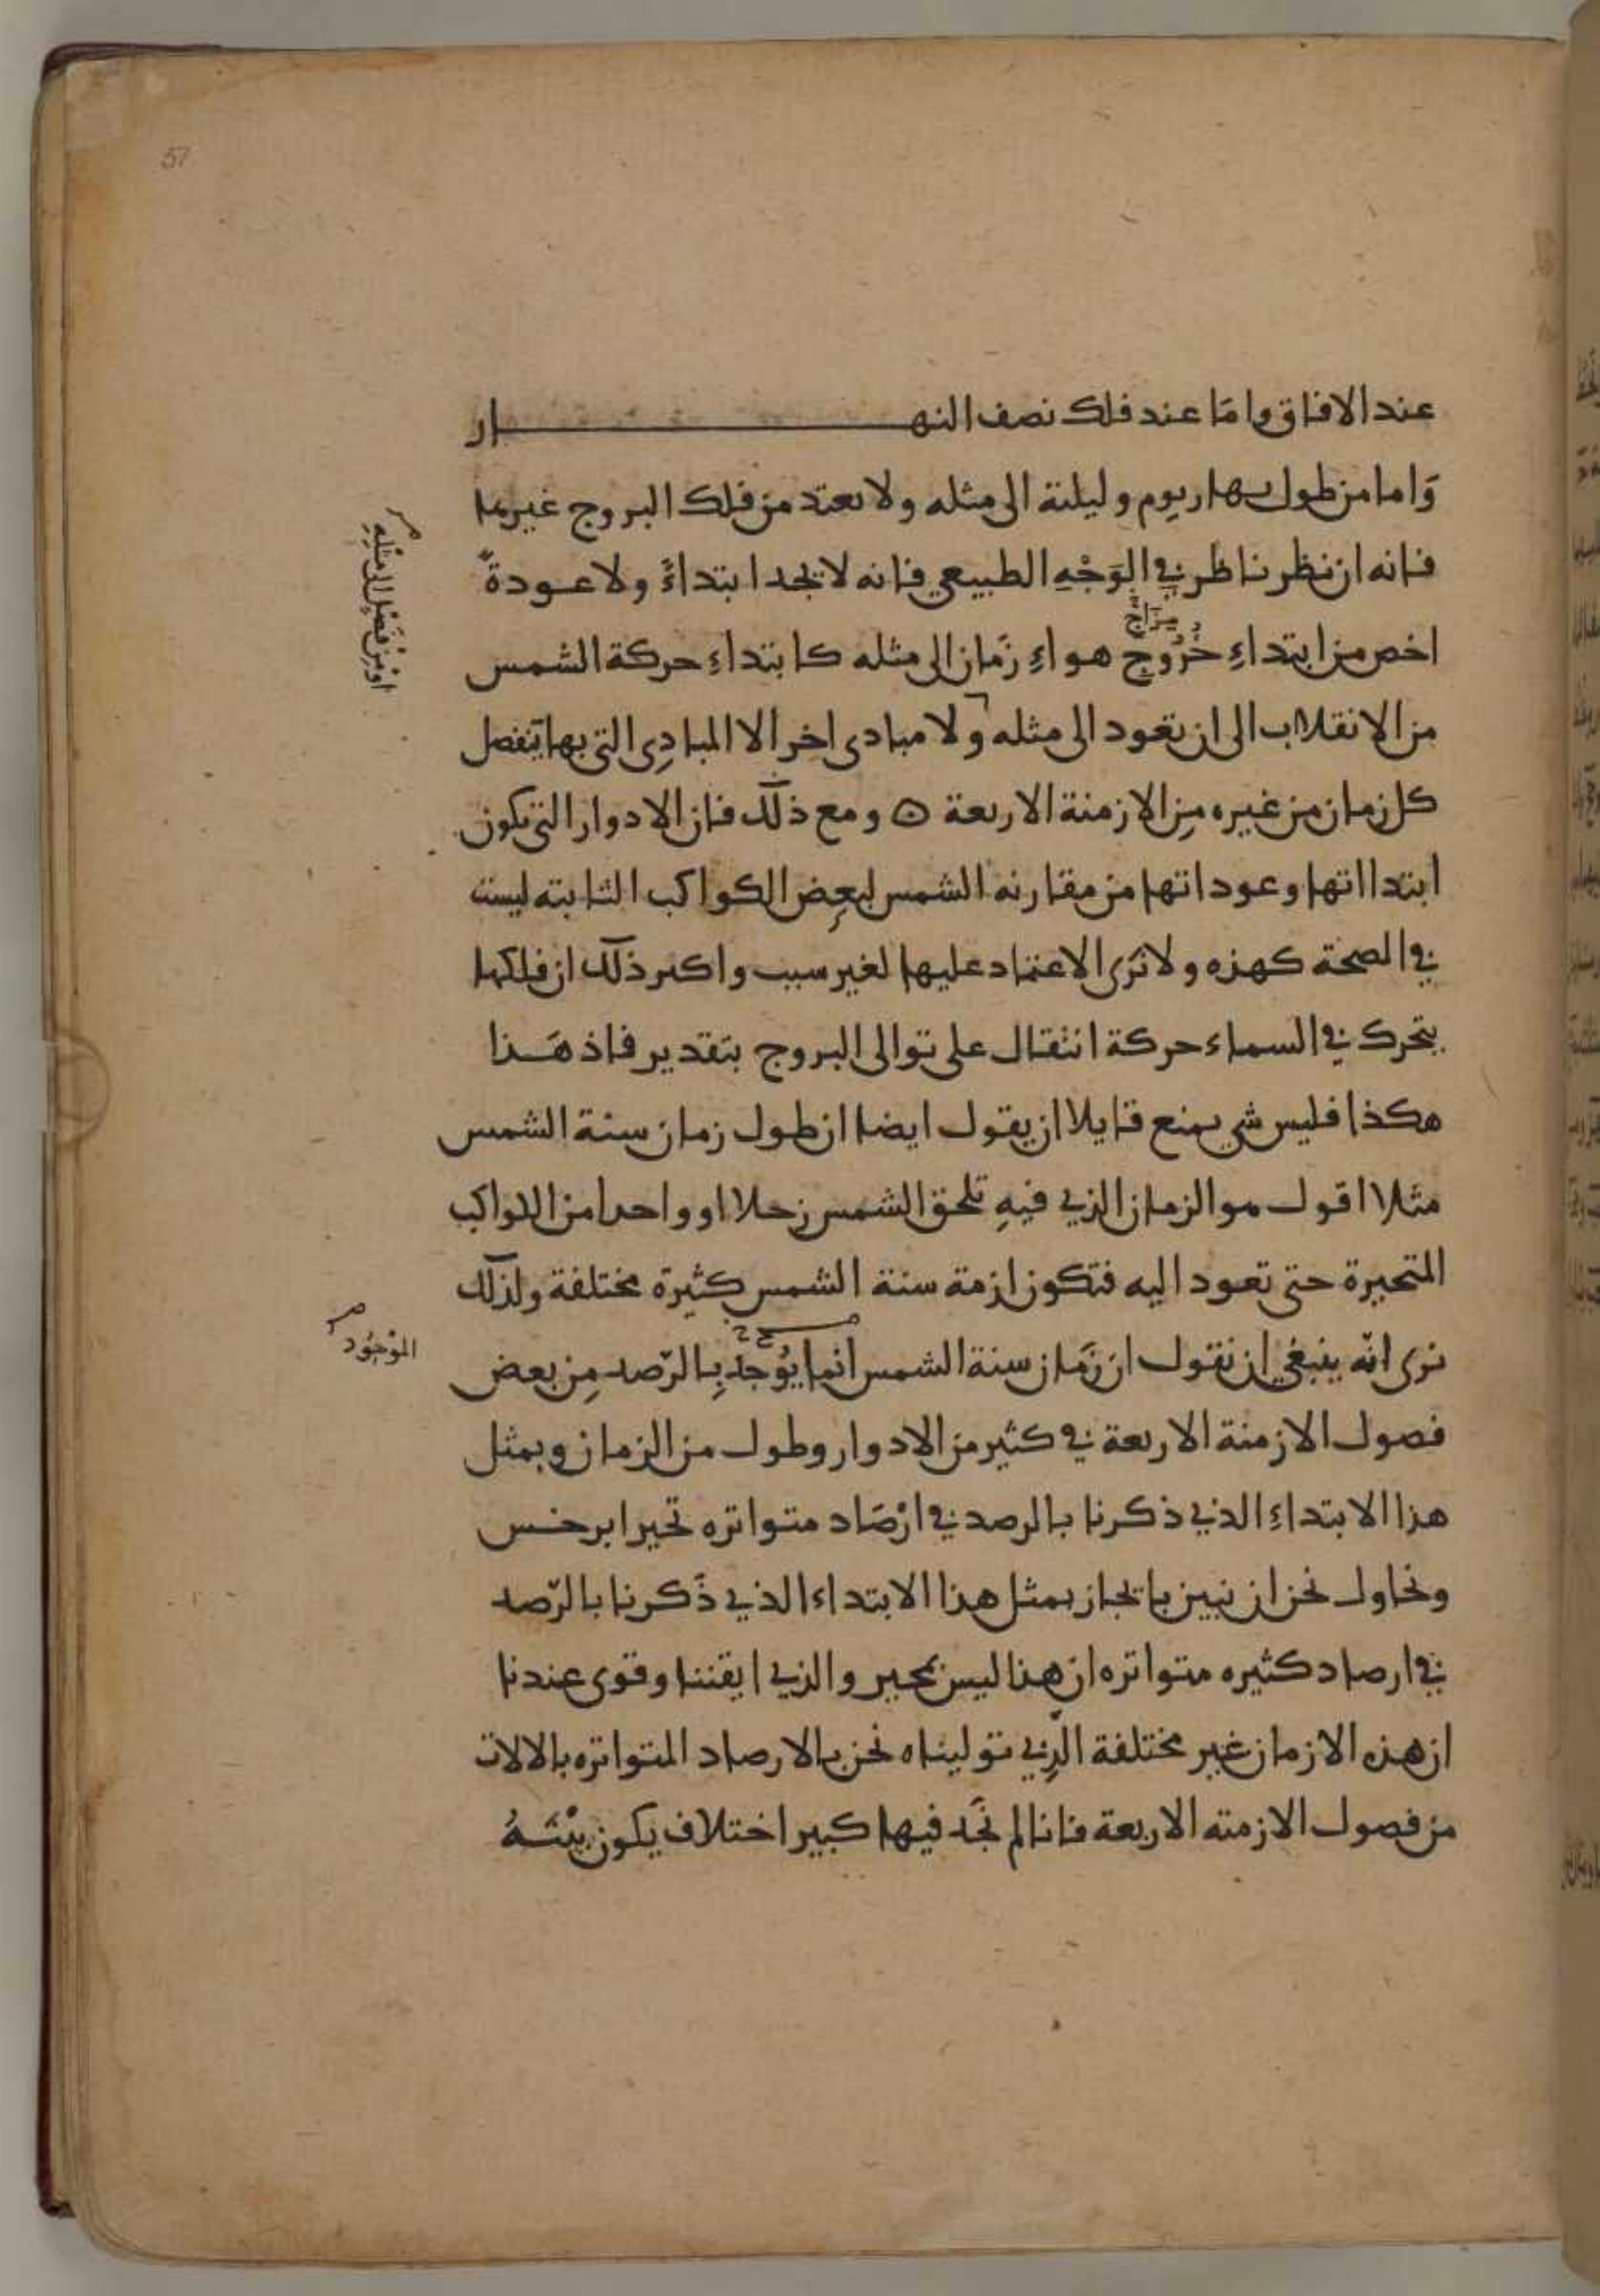 عند الافاق واما عند فلك نصف النهار
وَاما من طول نهار يوم وليلته الى مثله ولا نعتد من فلك البروج غيرها
فانه ان نظر ناظر في الوَجْهِ الطبيعي فانه لا يجد ابتداءً ولا عودةً
مِزَاج
اخص من ابتداءِ خُرُوج هواءِ زَمان الى مثله كابتداءِ حركة الشمس
اوْ مِنْ فَصْل الى مثلِهِ
من الانقلاب الى ان تعود الى مثله ولا مبادى اخر الا المبادِى التي بها يَنفصل
كل زمان من غيره مِن الازمنة الاربعة ۞ ومع ذلك فان الادوار التي يكون
ابتدااتها وعوداتها من مقارنه الشمس لبعِض الكواكب الثابته ليست
في الصحة كهذه ولا نَرَى الاعتماد عليها لغير سبب واكبر ذلك ان فلكها
يتحرك في السماء حركة انتقال على توالى البروج بتقدير فاذ هَذا
هكذا فليس شي يمنع قايلا ان يقول ايضا ان طول زمان سنة الشمس
مثلا اقول هو الزمان الذي فيهِ تلحق الشمس زحلا او واحدا من الكواكب
المتحيرة حتى تعود اليه فتكون ازمة سنة الشمس كثيرَة مختلفة ولذلك
نرى انّه ينبغي ان نقول ان زَمان سنة الشمس انما يُوجدُ بِالرّصد مِن بعض
الموْجُود
فصول الازمنة الاربعة في كثير من الادوار وطول من الزمان وبمثل
هذا الابتداءِ الذي ذكرنا بالرصد في ارْصَاد متواتره تحير ابرخس
ونحاول نحن ان نبين بايجاز بمثل هذا الابتداء الذي ذَكرنا بالرّصد
في ارصاد كثيره متواتره ان هذا ليس بمحير والذي ايقننا وقوى عندنا
ان هذه الازمان غير مختلفة الذِي توليناه نحن بالارصاد المتواتره بالالات
من فصول الازمنه الاربعة فانا لم نَجَد فيها كبير اختلاف يكون